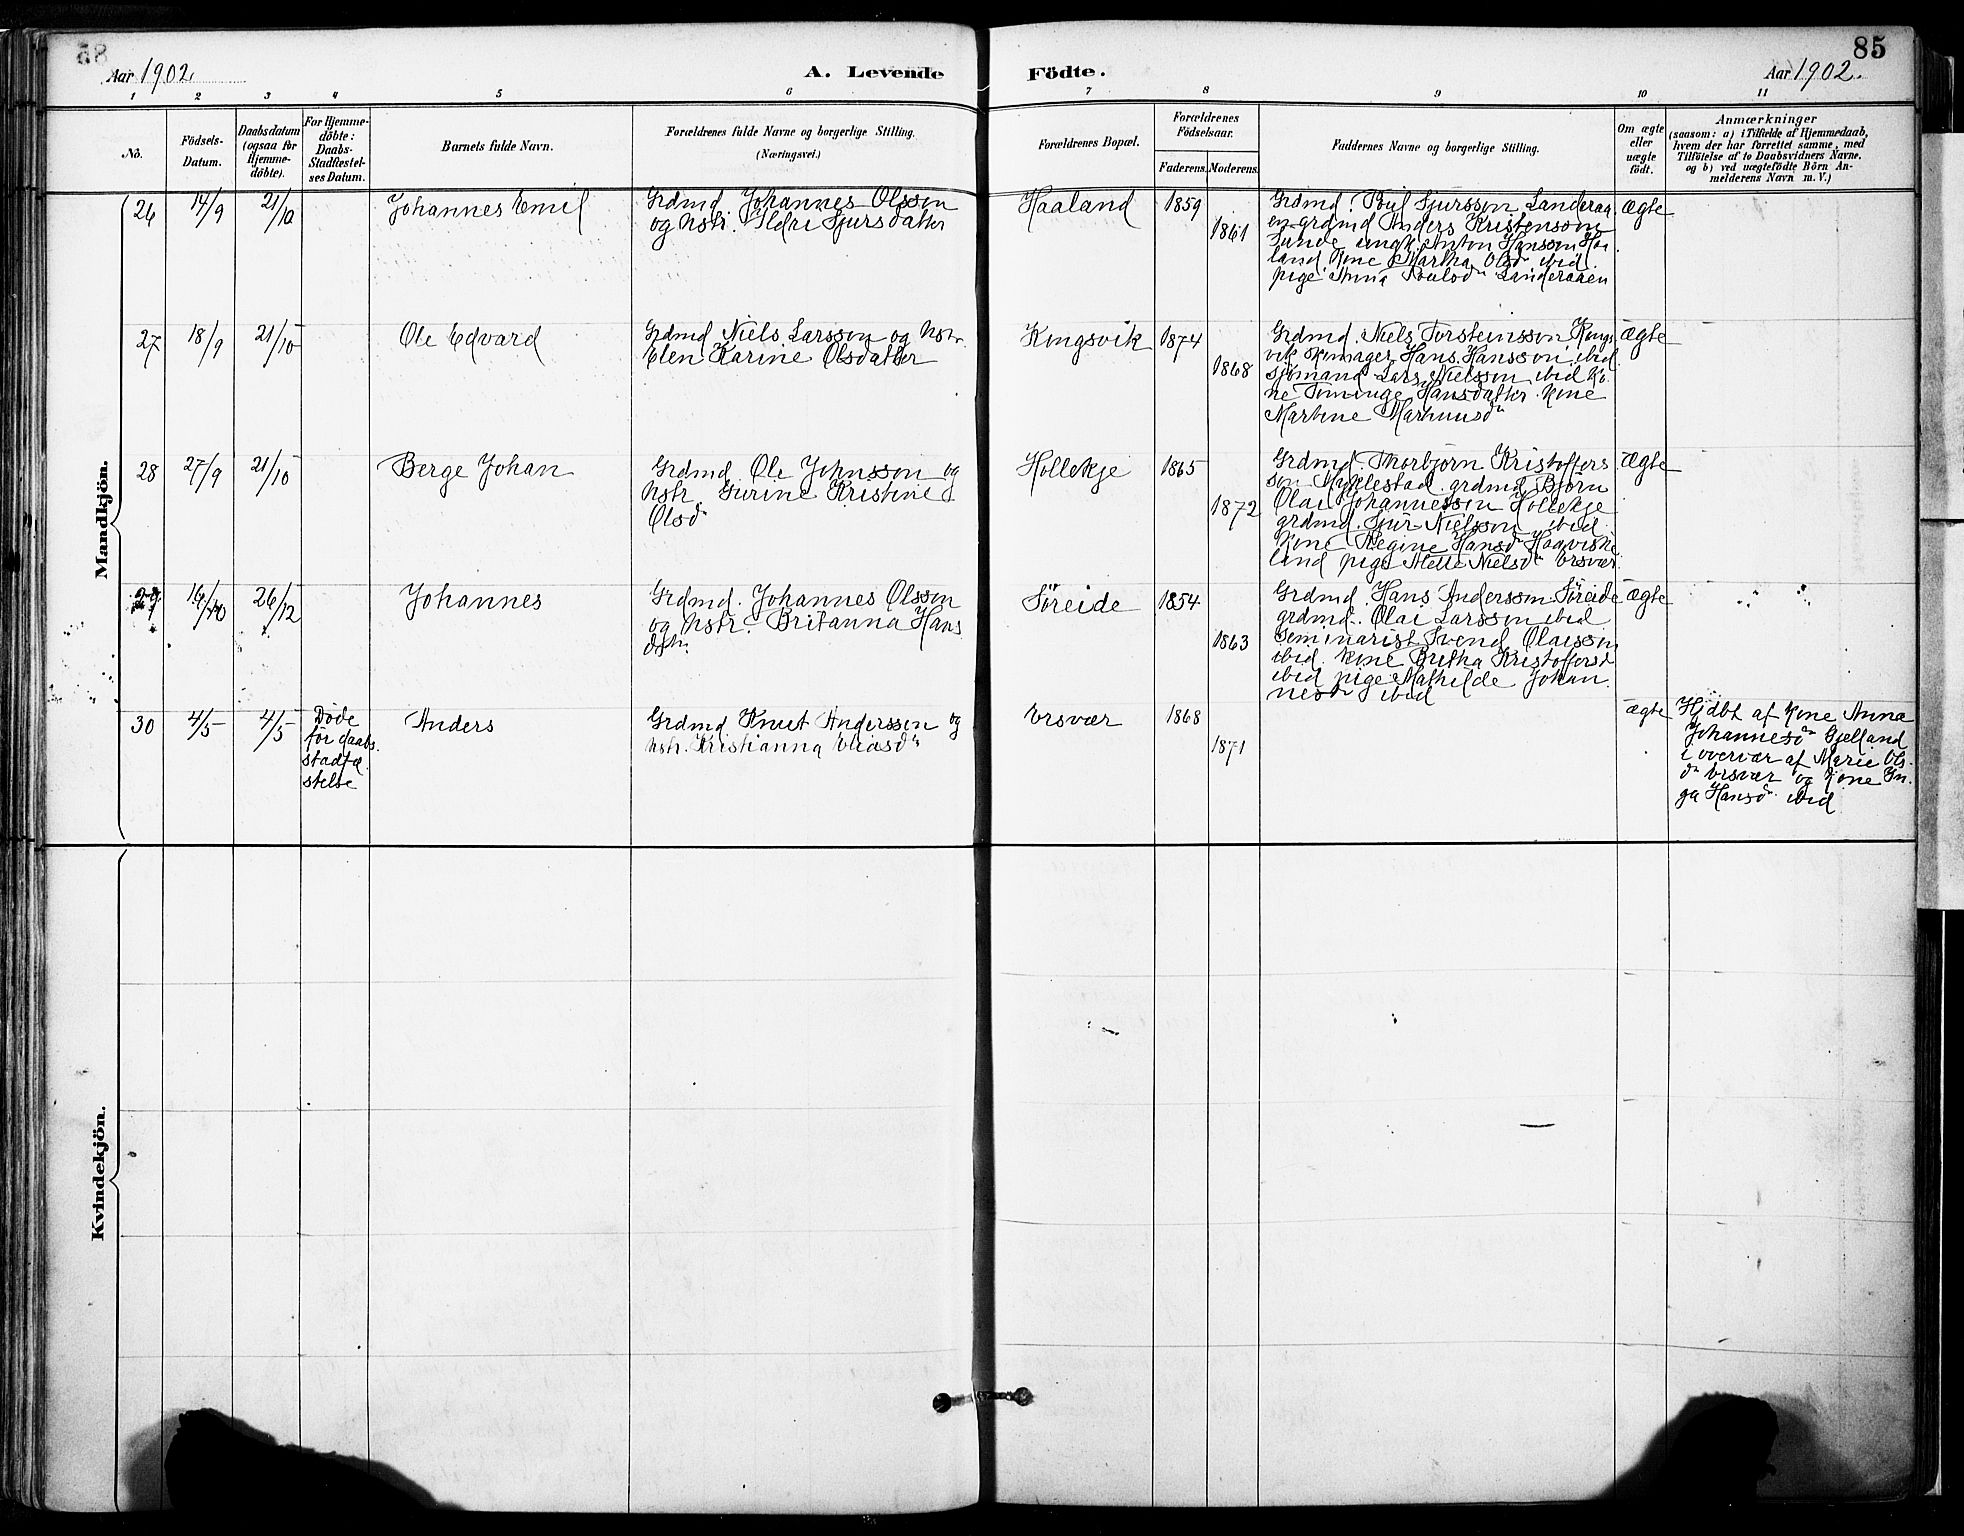 Aar 1902.
A. Levende
Födte.
85
Aar 1902.
1 2 3 4 5 6 7 8 9 10 11
No.
Födsels-
Datum.
Daabsdatum
(ogsaa for
Hjemme-
döbte).
For Hjemme-
döbte:
Daabs-
Stadfæstel-
ses Datum.
Barnets fulde Navn.
Forældrenes fulde Navne og borgerlige Stilling.
(Næringsvei.)
Forældrenes Bopæl.
Forældrenes
Födselsaar.
Faderens.
Moderens.
Faddernes Navne og borgerlige Stilling.
Om ægte
eller
uægte
födt.
Anmærkninger
(saasom: a) i Tilfælde af Hjemmedaab,
hvem der har forrettet samme, med
Tilföielse af to Daabsvidners Navne,
og b) ved uægtefödte Börn An-
melderens Navn m. V.)
Mandkjön.
26
14/9
21/10
Johannes Emil
Grdmd. Johannes Olsson
og hstr. Sjursdatter
Haaland
1859
1861
Grdmd. Sjursson Landeraa
en grdmd Anders Kristensson
Sunde ungk. Anton Hansson Haa
land Kone Martha Olsdr ibid
pige Anna Landeraaen
ægte
27
18/9
21/10
Ole Edvard
Grdmd Niels Larsson og hstr.
Elen Karine Olsdatter
Kongsvik
1874
1868
Grdmd. Niels Torsteinsson Kongs
vik Hans Hansson ibid
sjömand Lars Nielsson ibid Ko
ne Hansdatter Kone
Martine
ægte
28
27/9
21/10
Berge Johan
Grdmd. Ole Johnsson og
hstr. Gurine Kristine
Olsdr
Hollekje
1865
1872
Grdmd. Thorbjörn Kristoffers
son Myklestad grdmd. Björn
Olai Johannesson Hollekje
grdmd. Sjur Nielsson ibid
Kone Regine Hansdr
land pige Nielsdr Ersvær
ægte
29
16/10
26/12
Johannes
Grdmd. Johannes Olsson
og hstr. Britanna Hans
dtr.
Söreide
1854
1863
Grdmd. Hans Andersson Söreide
grdmd. Olai Larsson ibid
Seminarist Svend Olaisson
ibid. Kone Britha Kristoffersd
ibid pige Mathilde Johan
nesdr ibid
ægte
30
4/5
4/5
Döde
för daabs
stadfæ
stelse
Anders
Grdmd Knut Andersson og
hstr. Kristianna Eliasdr
Ersvær
1868
1871
ægte
Hjdbt af Kone Anna
Johannesdr Gjelland
i overvær af Marie Ols-
dr Ersvær og Kone In-
ga Hansdr ibid
Kvindekjön.